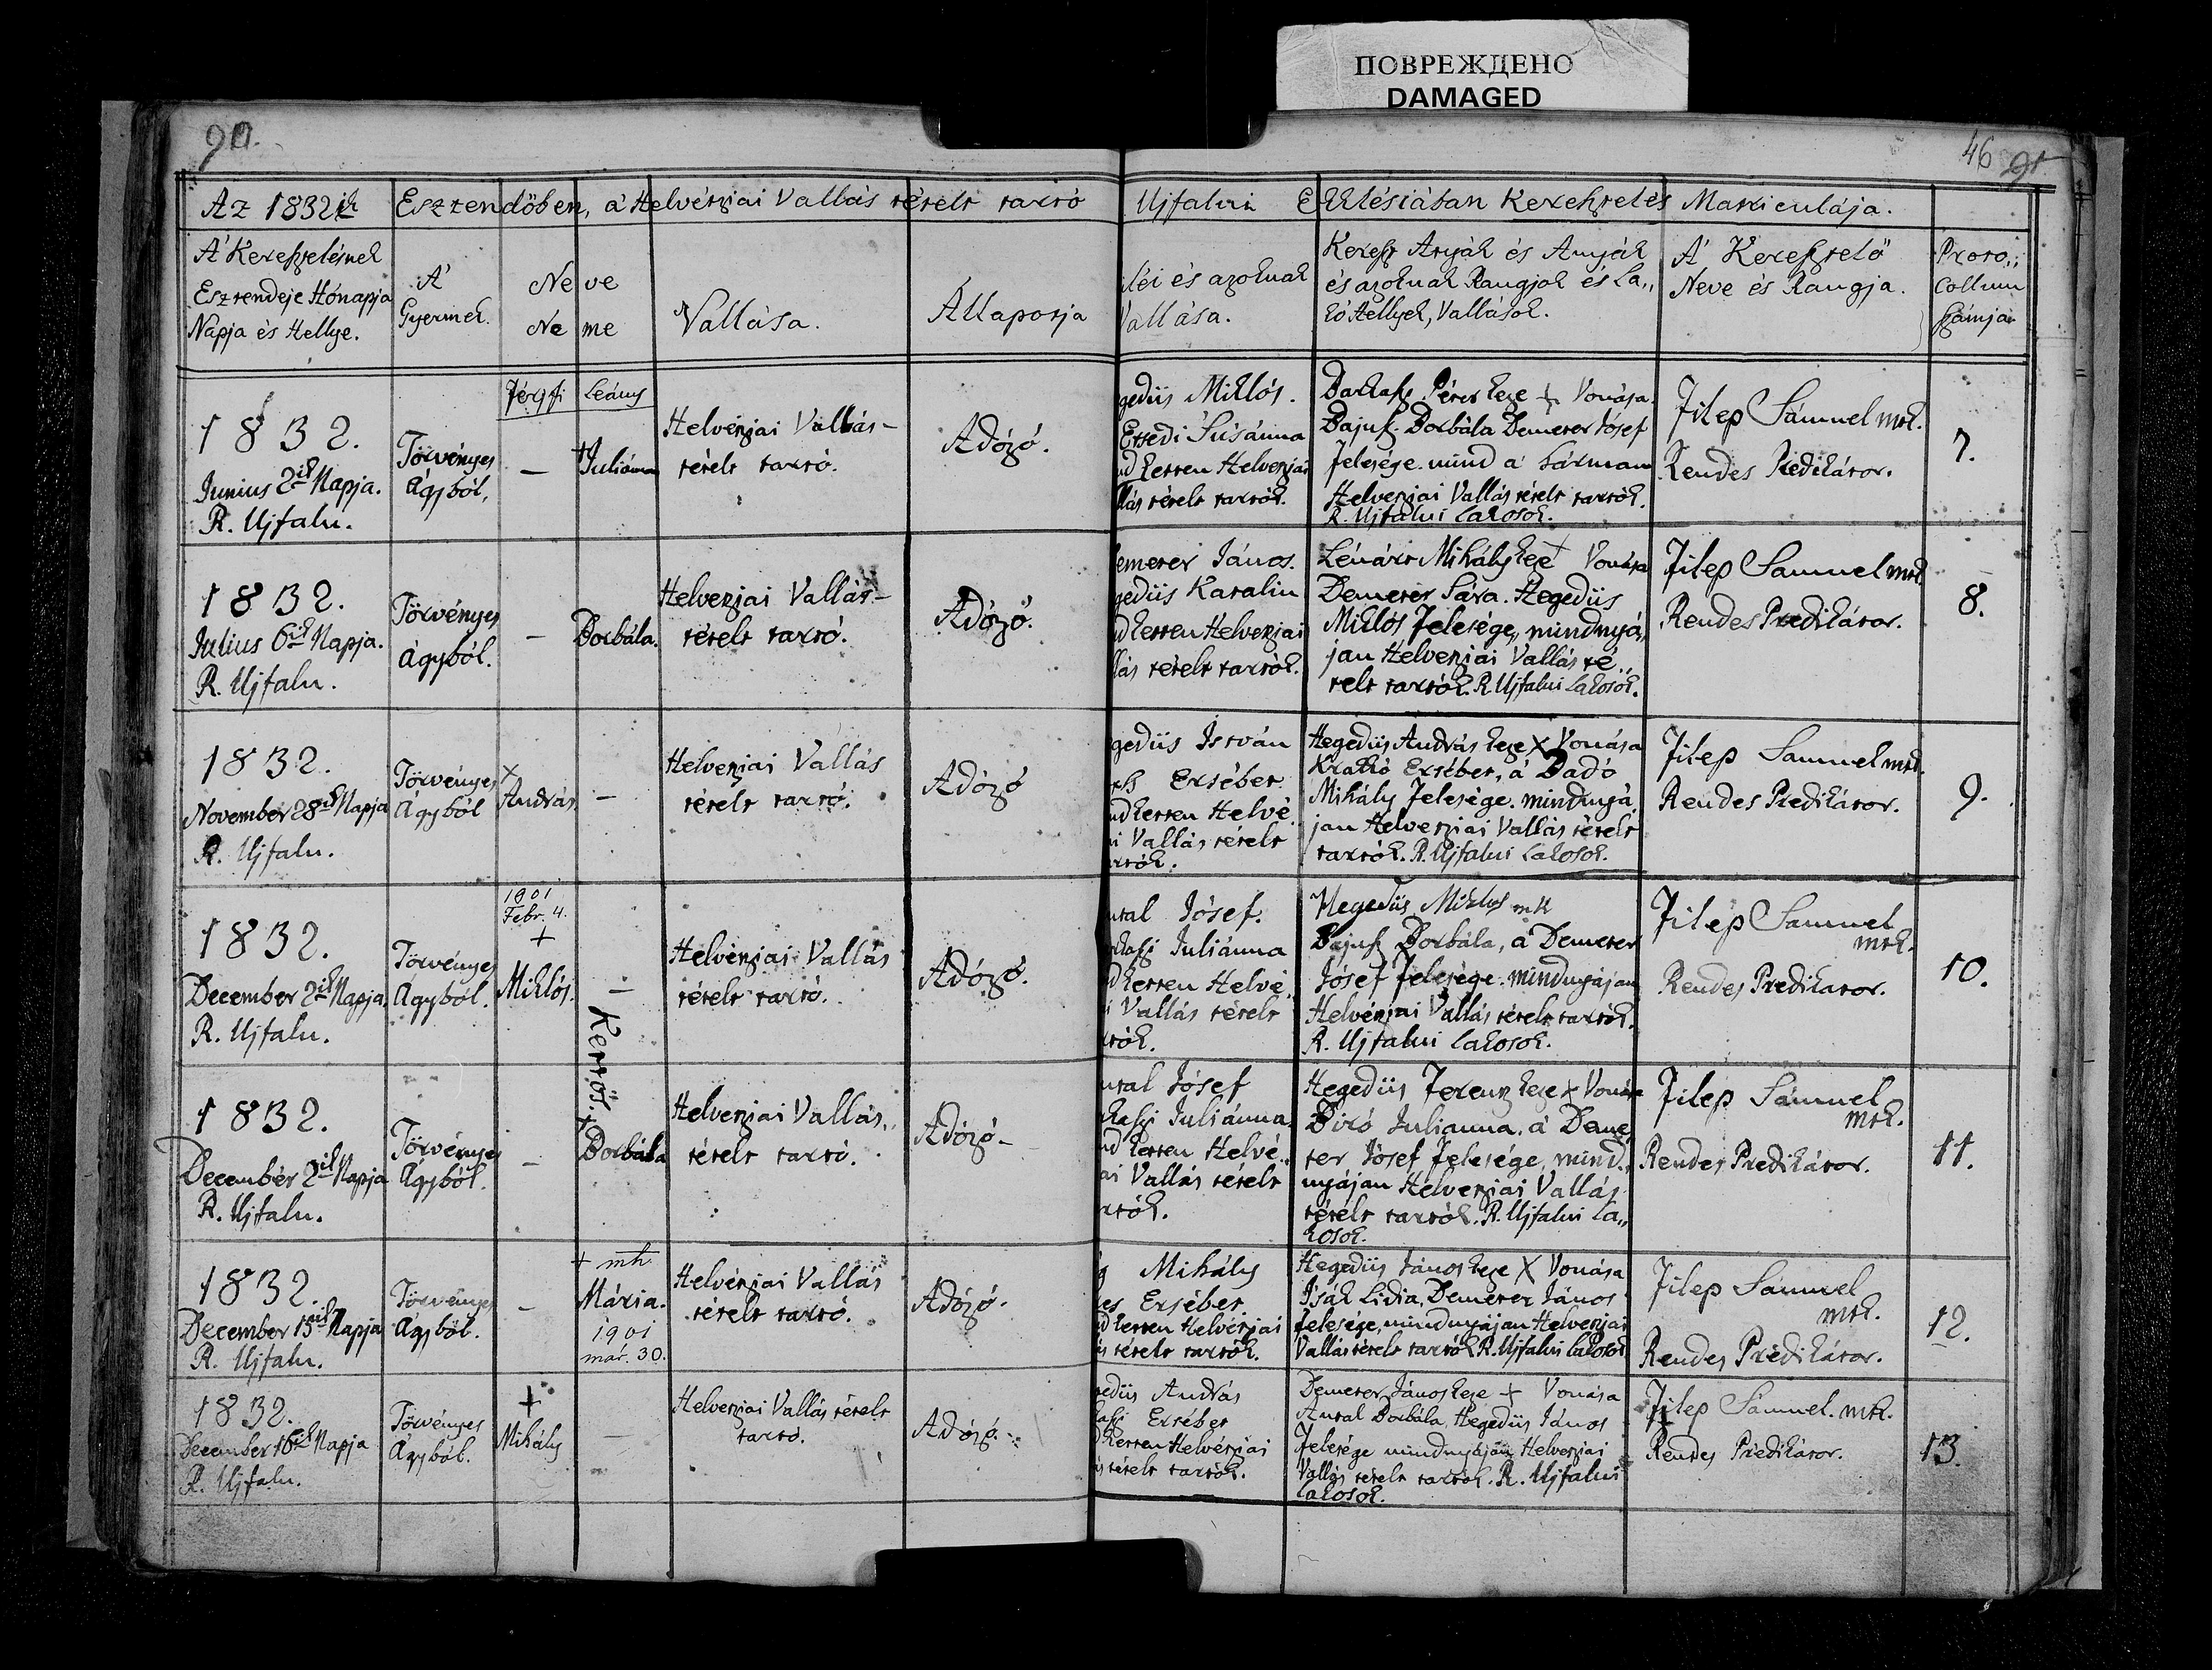 ПОВРЕЖДЕНО
DAMAGED
90.
46 91.
Az 1832ik Esztendőben, a' Helvétziai Vallás tételt tartó Ujfalui Ekklésiában Keresztelés Matriculája.
A' Keresztelésnek
Esztendeje Hónapja
Napja és Hellye.
A'
Gyermek.
Neve
Neme
Vallása.
Állapotja
lei és azoknak
Vallása.
Kereszt Atyák és Anyák
és azoknak Rangjok és La„
kó Hellyek, Vallások.
A' Keresztelő
Neve és Rangja.
Proto„
collum
Számja
férjfi
Leány
1832.
Junius 2ik Napja.
R. Ujfalu.
Törvényes
Ágyból,
—
Juliánna
Helvétziai Vallás-
tételt tartó.
Adózó.
gedüs Miklós.
Ersedi Súsánna
nd ketten Helvétziai
llás tételt tartók.
Barkaszi Péter keze + Vonása.
Bajusz Borbála Demeter Jósef
felesége mind a' hárman
Helvetziai Vallás tételt tartók.
R. Ujfalui Lakosok.
Filep Sámuel mtk.
Rendes Prédikátor.
7.
1832.
Julius 6ik Napja.
R. Ujfalu.
Törvényes
Ágyból.
—
Borbála.
Helvetziai Vallás-
tételt tartó.
Adózó.
emeter János.
gedüs Katalin
nd ketten Helvetziai
llás tételt tartók.
Lénárt Mihály keze + Vonása
Demeter Sára. Hegedüs
Miklós felesége„ mindnyá„
jan Helvetziai Vallás té„
telt tartók. R. Ujfalui Lakosok.
Filep Samuel mtk.
Rendes Predikátor.
8.
1832.
November 28ik Napja
R. Ujfalu.
Törvényes
Ágyból
+
András
—
Helvetziai Vallás
tételt tartó.
Adózó
gedüs István
Ersébet
nd ketten Helvé„
i Vallás tételt
artók.
Hegedüs András keze X Vonása
Krakkó Ersébet, a' Dadó
Mihály felesége. mindnyá„
jan Helvetziai Vallás tételt
tartók. R. Ujfalui Lakosok.
Filep Samuel mtk.
Rendes Predikátor.
9.
1832.
December 2ik Napja.
R. Ujfalu.
Törvényes
Ágyból.
1901
Febr. 4.
+
Miklós.
—
Kettős.
Helvétziai Vallás
tételt tartó.
Adózó.
ntal Jósef.
rkaszi Juliánna
d ketten Helvé„
i Vallás tételt
rtók.
Hegedüs Miklos mk
Bajusz Borbála, a' Demeter
Jósef felesége. mindnyájan
Helvétziai Vallás tételt tartók.
R. Ujfalui Lakosok.
Filep Samuel
mtk.
Rendes Prédikator.
10.
1832.
December 2ik Napja
R. Ujfalu.
Törvényes
Ágyból.
—
+
Borbála
Helvetziai Vallás„
tételt tartó.
Adózó-
ntal Jósef
kaszi Juliánna.
nd ketten Helvé„
ai Vallás tételt
artók.
Hegedüs Ferencz keze + Vonása
Biró Julianna, a' Deme„
ter Jósef felesége, mind„
nyájan Helvetziai Vallás
tételt tartók. R. Ujfalui La„
kosok.
Filep Sámuel
mtk.
Rendes Predikátor.
11.
1832.
December 15ik Napja
R. Ujfalu.
Törvényes
Ágyból.
—
+ mh
Mária.
1901
már. 30.
Helvétziai Vallás
tételt tartó.
Adózó.
Mihály
es Ersébet.
d ketten Helvétziai
s tételt tartók.
Hegedüs János keze X Vonása
Isák Lidia, Demeter János
felesége, mindnyájan Helvetziai
Vallás tételt tartók R. Ujfalui Lakosok
Filep Sámuel
mtk.
Rendes Prédikátor.
12.
1832.
December 16ik Napja
R. Ujfalu.
Törvényes
Ágyból.
+
Mihály
—
Helvetziai Vallás tételt
tartó.
Adózó.
edüs András
kaszi Ersébet
d ketten Helvétziai
s tételt tartók.
Demeter János keze + Vonása
Antal Borbála, Hegedüs János
felesége mindnyájan Helvetziai
Vallás tételt tartók. R. Ujfalui
Lakosok.
Filep Sámuel. mtk.
Rendes Prédikátor.
13.